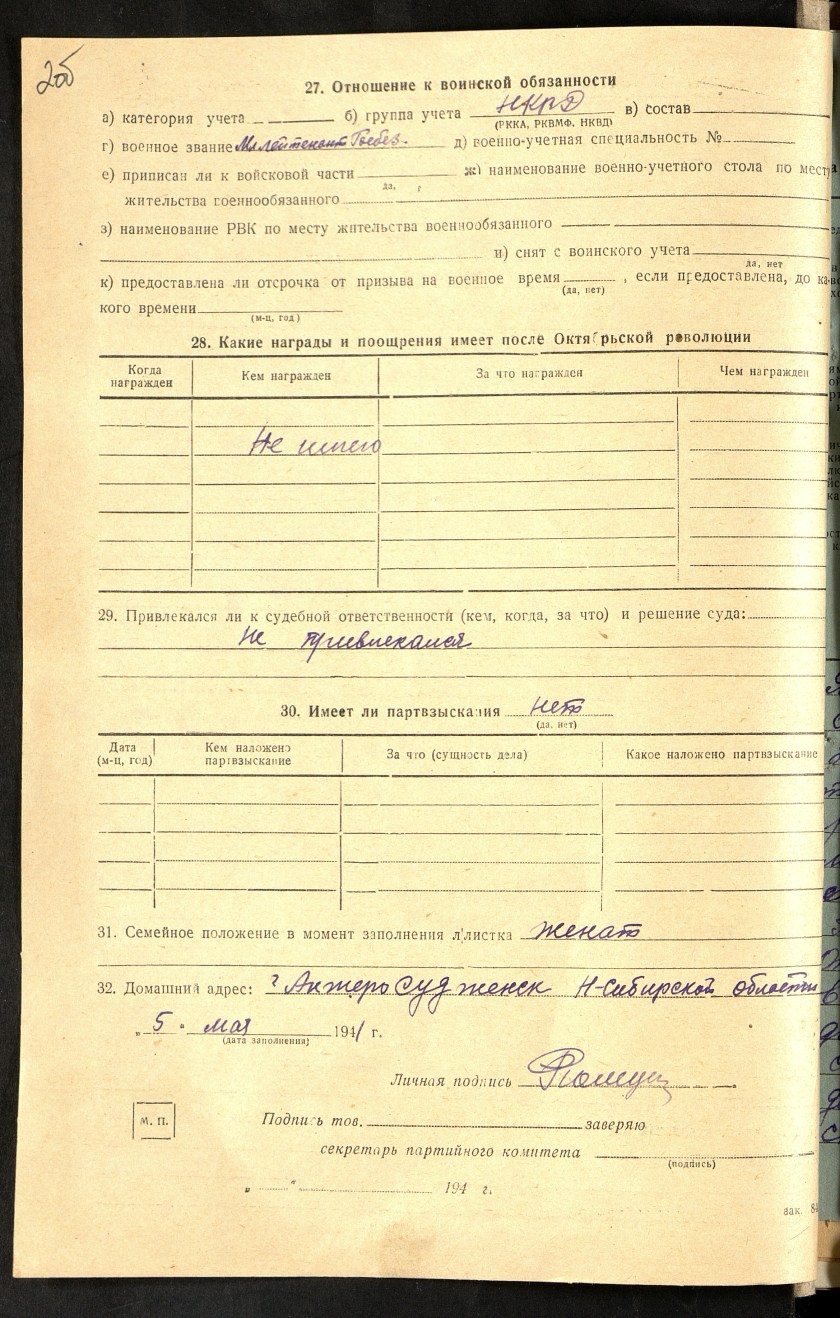 2об
27. Отношение к воинской обязанности
а) категория учета б) группа учета НКВД в) состав
(РККА, РКВМФ, НКВД)
г) военное звание Мл лейтенант Госбез. д) военно-учетная специальность №
е) приписан ли к войсковой части ж) наименование военно-учетного стола по месту
да,
жительства военнообязанного
з) наименование РВК по месту жительства военнообязанного
и) снят с воинского учета
да, нет
к) предоставлена ли отсрочка от призыва на военное время , если предоставлена, до ка-
(да, нет)
кого времени
(м-ц, год)
28. Какие награды и поощрения имеет после Октябрьской революции
Когда награжден Кем награжден За что награжден Чем награжден
Не имею
29. Привлекался ли к судебной ответственности (кем, когда, за что) и решение суда:
Не привлекался
30. Имеет ли партвзыскания нет
(да, нет)
Дата (м-ц, год) Кем наложено партвзыскание За что (сущность дела) Какое наложено партвзыскание
31. Семейное положение в момент заполнения л/листка женат
32. Домашний адрес: г Анжеро Судженск Н-Сибирской области
„5" мая 1941 г.
(дата заполнения)
Личная подпись
м. п.
Подпись тов. заверяю
секретарь партийного комитета
(подпись)
„ " 194 г.
зак. 8